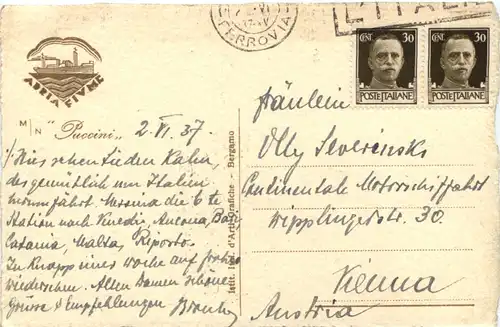 FERROVIA
L'ITAL
CENT. 30
POSTE ITALIANE
CENT. 30
POSTE ITALIANE
ADRIA FIUME
M/N "Puccini" 2. VI. 37.
Hier sehen Sie den Kahn,
der gemütlich um Italien
herumfährt. Messina die 6te
Station nach Venedig, Ancona, Bari,
Catania, Malta, Riposto.
In knapp einer Woche auf frohes
Wiedersehen. Allen Damen schöne
Grüsse & Empfehlungen
Istit. Ital. d'Arti Grafiche - Bergamo
Fräulein
Olly Severinski
Continentale Motorschiffahrt
Wipplingerstr. 30.
Vienna
Austria